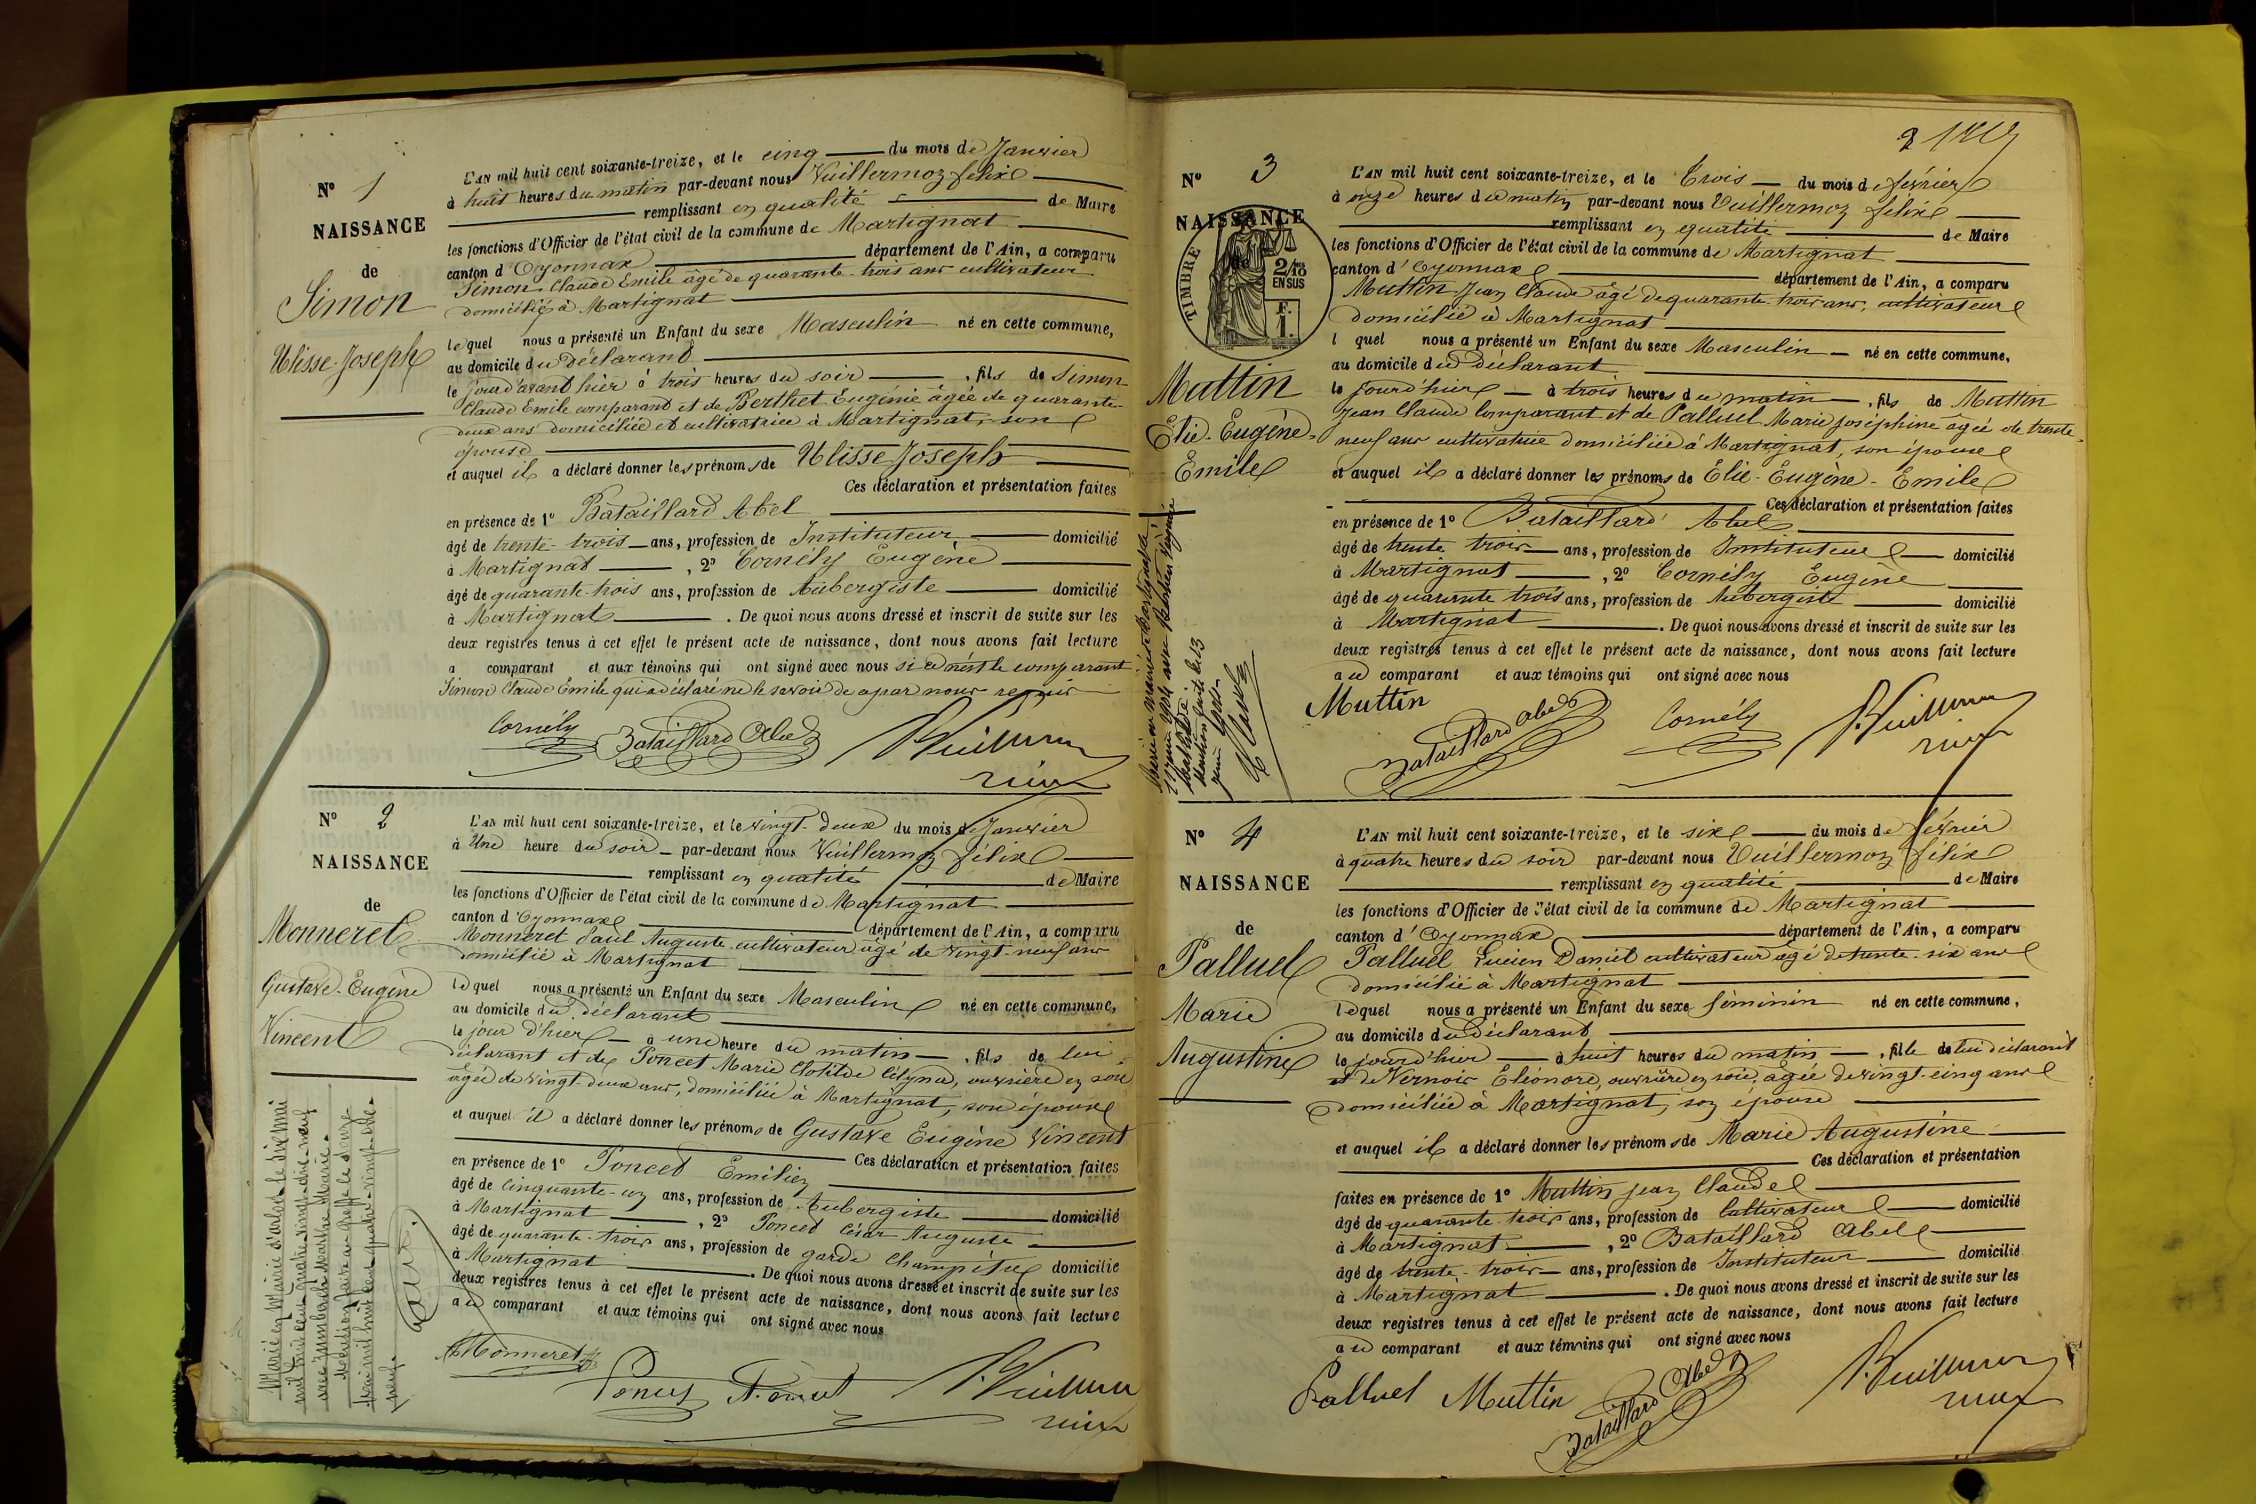 N° 1
NAISSANCE
de
Simon
Ulisse-Joseph
L'AN mil huit cent soixante-treize, et le cinq du mois de Janvier
à huit heures du matin par-devant nous Vuillermoz félix
remplissant en qualité de Maire
les fonctions d'Officier de l'état civil de la commune de Martignat
canton d'Oyonnax département de l'Ain, a comparu
Simon Claude Emile âgé de quarante-trois ans cultivateur
domicilié à Martignat
lequel nous a présenté un Enfant du sexe Masculin né en cette commune,
au domicile du déclarant
le jour d'avant hier à trois heures du soir, fils de Simon
Claude Emile comparant et de Berthet Eugénie âgée de quarante-
deux ans domiciliée et cultivatrice à Martignat, son
épouse
et auquel il a déclaré donner les prénoms de Ulisse Joseph
Ces déclaration et présentation faites
en présence de 1° Bataillard Abel
âgé de trente-trois ans, profession de Instituteur domicilié
à Martignat, 2° Cornély Eugène
âgé de quarante-trois ans, profession de Aubergiste domicilié
à Martignat. De quoi nous avons dressé et inscrit de suite sur les
deux registres tenus à cet effet le présent acte de naissance, dont nous avons fait lecture
a comparant et aux témoins qui ont signé avec nous si ce n'est le comparant
Simon Claude Emile qui a déclaré ne le savoir de ce par nous requis
Cornély Bataillard Abel f. Vuiller
moz
N° 2
NAISSANCE
de
Monneret
Gustave-Eugène
Vincent
L'AN mil huit cent soixante-treize, et le vingt-deux du mois de Janvier
à Une heure du soir par-devant nous Vuillermoz félix
remplissant en qualité de Maire
les fonctions d'Officier de l'état civil de la commune de Martignat
canton d'Oyonnax département de l'Ain, a comparu
Monneret Paul Auguste cultivateur âgé de vingt-neuf ans
domicilié à Martignat
lequel nous a présenté un Enfant du sexe Masculin né en cette commune,
au domicile du déclarant
le jour d'hier à une heure du matin, fils de lui
déclarant et de Poncet Marie Clotilde Célyna, ouvrière en soie
âgée de vingt-deux ans, domiciliée à Martignat, son épouse
et auquel il a déclaré donner les prénoms de Gustave Eugène Vincent
Ces déclaration et présentation faites
en présence de 1° Poncet Emilien
âgé de Cinquante-un ans, profession de Aubergiste domicilié
à Martignat, 2° Poncet César Auguste
âgé de quarante-trois ans, profession de garde Champêtre domicilié
à Martignat. De quoi nous avons dressé et inscrit de suite sur les
deux registres tenus à cet effet le présent acte de naissance, dont nous avons fait lecture
au comparant et aux témoins qui ont signé avec nous
Monneret Poncet A. Poncet f. Vuiller
moz
Marié en Mairie d'Arbent le dix mai
mil huit cent quatre-vingt-dix-neuf
avec Marthe Marie.
Mention faite au Greffe le douze
mai mil huit cent quatre-vingt-dix-
neuf.
2
N° 3
NAISSANCE
TIMBRE
2/10 EN SUS
F. 1.
Muttin
Elie-Eugène-
Emile
L'AN mil huit cent soixante-treize, et le Trois du mois de février
à onze heures du matin par-devant nous Vuillermoz félix
remplissant en qualité de Maire
les fonctions d'Officier de l'état civil de la commune de Martignat
canton d'Oyonnax département de l'Ain, a comparu
Muttin Jean Claude âgé de quarante-trois ans, cultivateur
domicilié à Martignat
l quel nous a présenté un Enfant du sexe Masculin né en cette commune,
au domicile du déclarant
le jour d'hier à trois heures du matin, fils de Muttin
Jean Claude Comparant et de Palluel Marie Joséphine âgée de trente-
neuf ans cultivatrice domiciliée à Martignat, son épouse
et auquel il a déclaré donner les prénoms de Elie-Eugène-Emile
Ces déclaration et présentation faites
en présence de 1° Bataillard Abel
âgé de trente trois ans, profession de Instituteur domicilié
à Martignat, 2° Cornély Eugène
âgé de quarante trois ans, profession de Aubergiste domicilié
à Martignat. De quoi nous avons dressé et inscrit de suite sur les
deux registres tenus à cet effet le présent acte de naissance, dont nous avons fait lecture
au comparant et aux témoins qui ont signé avec nous
Muttin Bataillard Abel Cornély f. Vuiller
moz
N° 4
NAISSANCE
de
Palluel
Marie
Augustine
L'AN mil huit cent soixante-treize, et le six du mois de février
à quatre heures du soir par-devant nous Vuillermoz félix
remplissant en qualité de Maire
les fonctions d'Officier de l'état civil de la commune de Martignat
canton d'Oyonnax département de l'Ain, a comparu
Palluel Lucien Daniel cultivateur âgé de trente-six ans
domicilié à Martignat
lequel nous a présenté un Enfant du sexe féminin né en cette commune,
au domicile du déclarant
le jour d'hier à huit heures du matin, fille de lui déclarant
et de Vernois Eléonore, ouvrière en soie, âgée de vingt-cinq ans
domiciliée à Martignat, son épouse
et auquel il a déclaré donner les prénoms de Marie Augustine
Ces déclaration et présentation
faites en présence de 1° Muttin jean Claude
âgé de quarante-trois ans, profession de Cultivateur domicilié
à Martignat, 2° Bataillard Abel
âgé de trente-trois ans, profession de Instituteur domicilié
à Martignat. De quoi nous avons dressé et inscrit de suite sur les
deux registres tenus à cet effet le présent acte de naissance, dont nous avons fait lecture
au comparant et aux témoins qui ont signé avec nous
Palluel Muttin Bataillard Abel f. Vuiller
moz